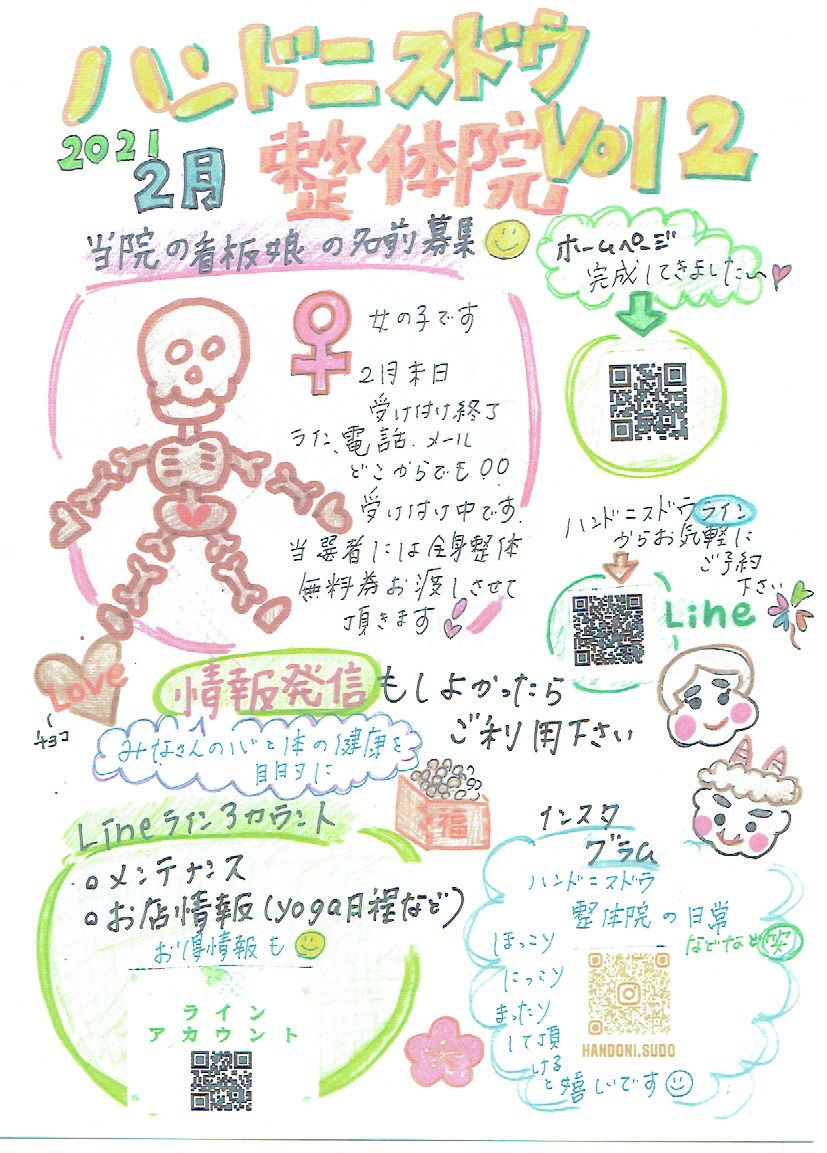 ハンドニスドウ
整体院 Vol 2
2021
2月
当院の看板娘の名前募集
女の子です
2月末日
受け付け終了
ライン、電話、メール
どこからでもOO
受け付け中です。
当選者には全身整体
無料券お渡しさせて
頂きます
ホームページ
完成してきましたぁ〜
ハンドニスドウライン
からお気軽に
ご予約
下さい
Line
Love
チョコ
情報発信もしよかったら
ご利用下さい
みなさんの心と体の健康を
目的に
福
Lineラインアカウント
○メンテナンス
○お店情報(yoga日程など)
お得情報も
ライン
アカウント
インスタ
グラム
ハンドニスドウ
整体院の日常
などなど笑
ほっこり
にっこり
まったり
して頂
けると嬉しいです
HANDONI.SUDO